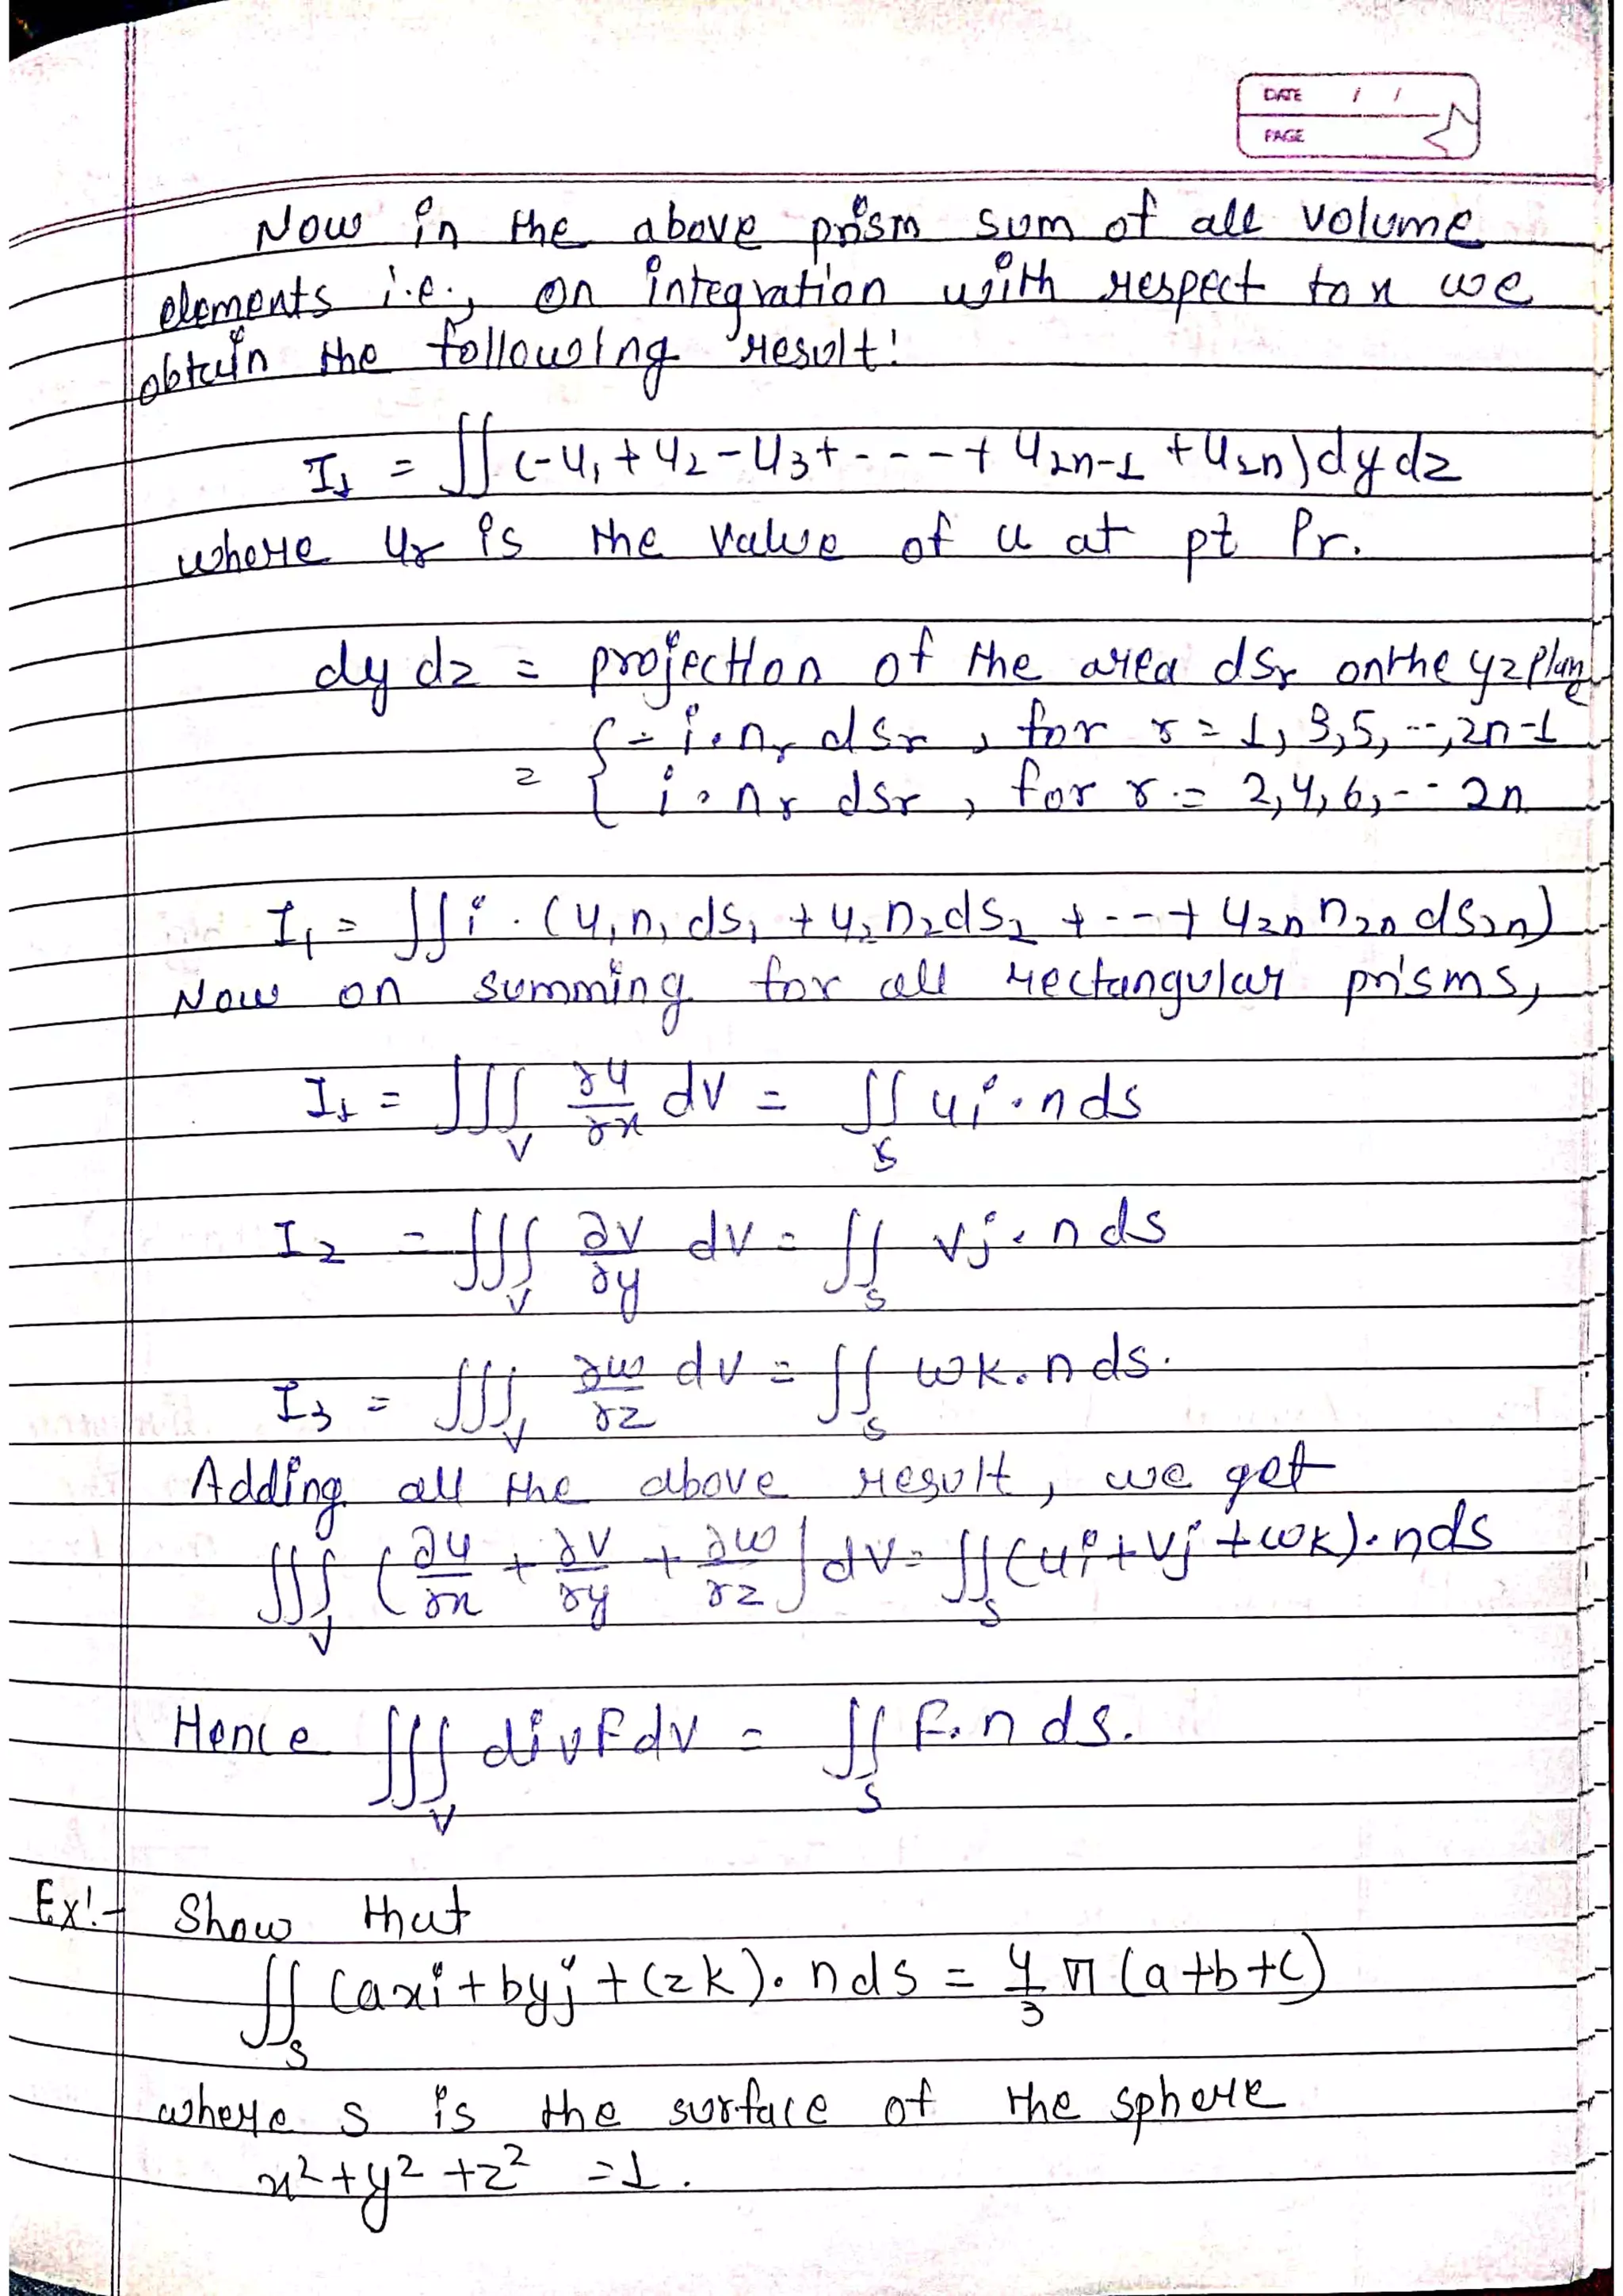 DATE / /
PAGE
Now in the above prism sum of all volume
elements i.e., on integration with respect to x we
obtain the following result:
I₁ = ∬(-u₁ + u₂ - u₃ + - - - + u₂ₙ₋₁ + u₂ₙ) dy dz
where uᵣ is the value of u at pt Pr.
dy dz = projection of the area dsᵣ on the yz plane
= { - i · nᵣ dsᵣ , for r = 1, 3, 5, --, 2n-1
{ i · nᵣ dsᵣ , for r = 2, 4, 6, -- 2n
I₁ = ∬ i · (u₁n₁ds₁ + u₂n₂ds₂ + - - + u₂ₙn₂ₙds₂ₙ)
Now on summing for all rectangular prisms,
I₁ = ∭_V ∂u/∂x dV = ∬_S ui · n ds
I₂ = ∭_V ∂v/∂y dV = ∬_S vj · n ds
I₃ = ∭_V ∂w/∂z dV = ∬_S wk · n ds.
Adding all the above result, we get
∭_V (∂u/∂x + ∂v/∂y + ∂w/∂z) dV = ∬_S (ui + vj + wk) · n ds
Hence ∭_V div F dV = ∬_S F · n ds.
Ex:- Show that
∬_S (axi + byj + czk) · n ds = 4/3 π (a+b+c)
where S is the surface of the sphere
x² + y² + z² = 1.